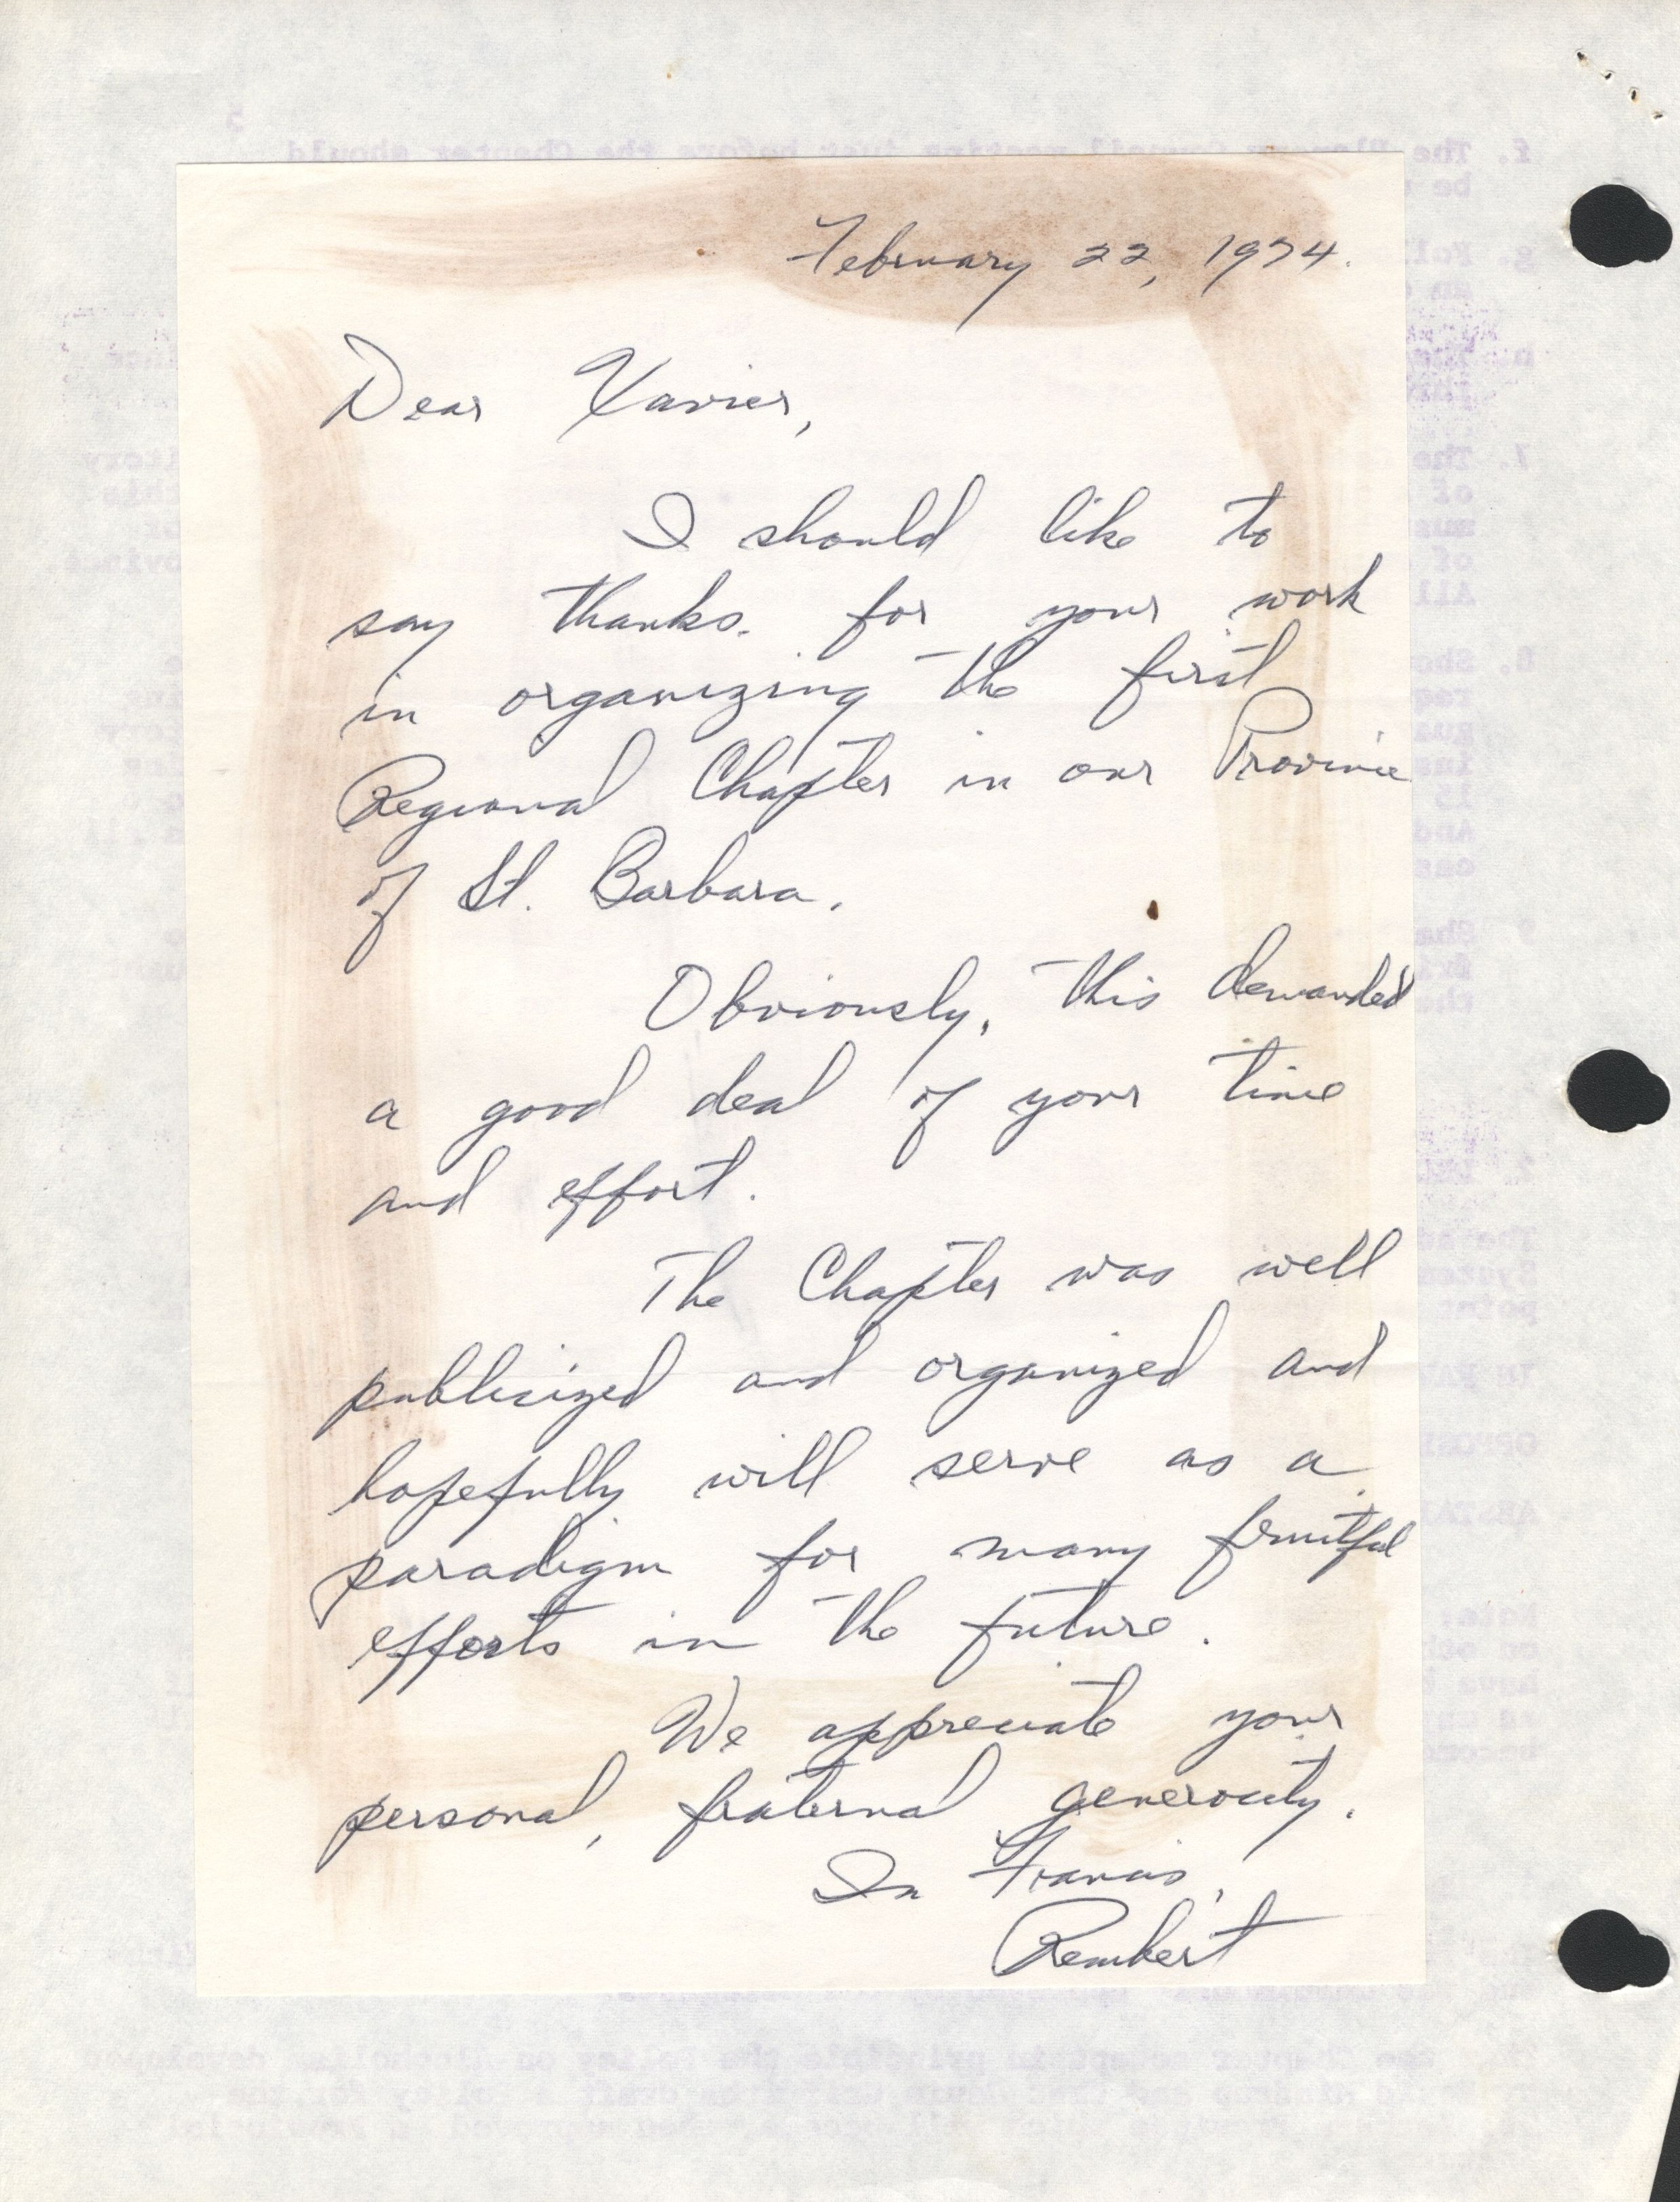 February 22, 1974.
Dear Xavier,
I should like to
say thanks. for your work
in organizing the first
Regional Chapter in our Province
of St. Barbara.
Obviously, this demanded
a good deal of your time
and effort.
The Chapter was well
publicized and organized and
hopefully will serve as a
paradigm for many fruitful
efforts in the future.
We appreciate your
personal, fraternal generosity.
In Francis,
Rembert